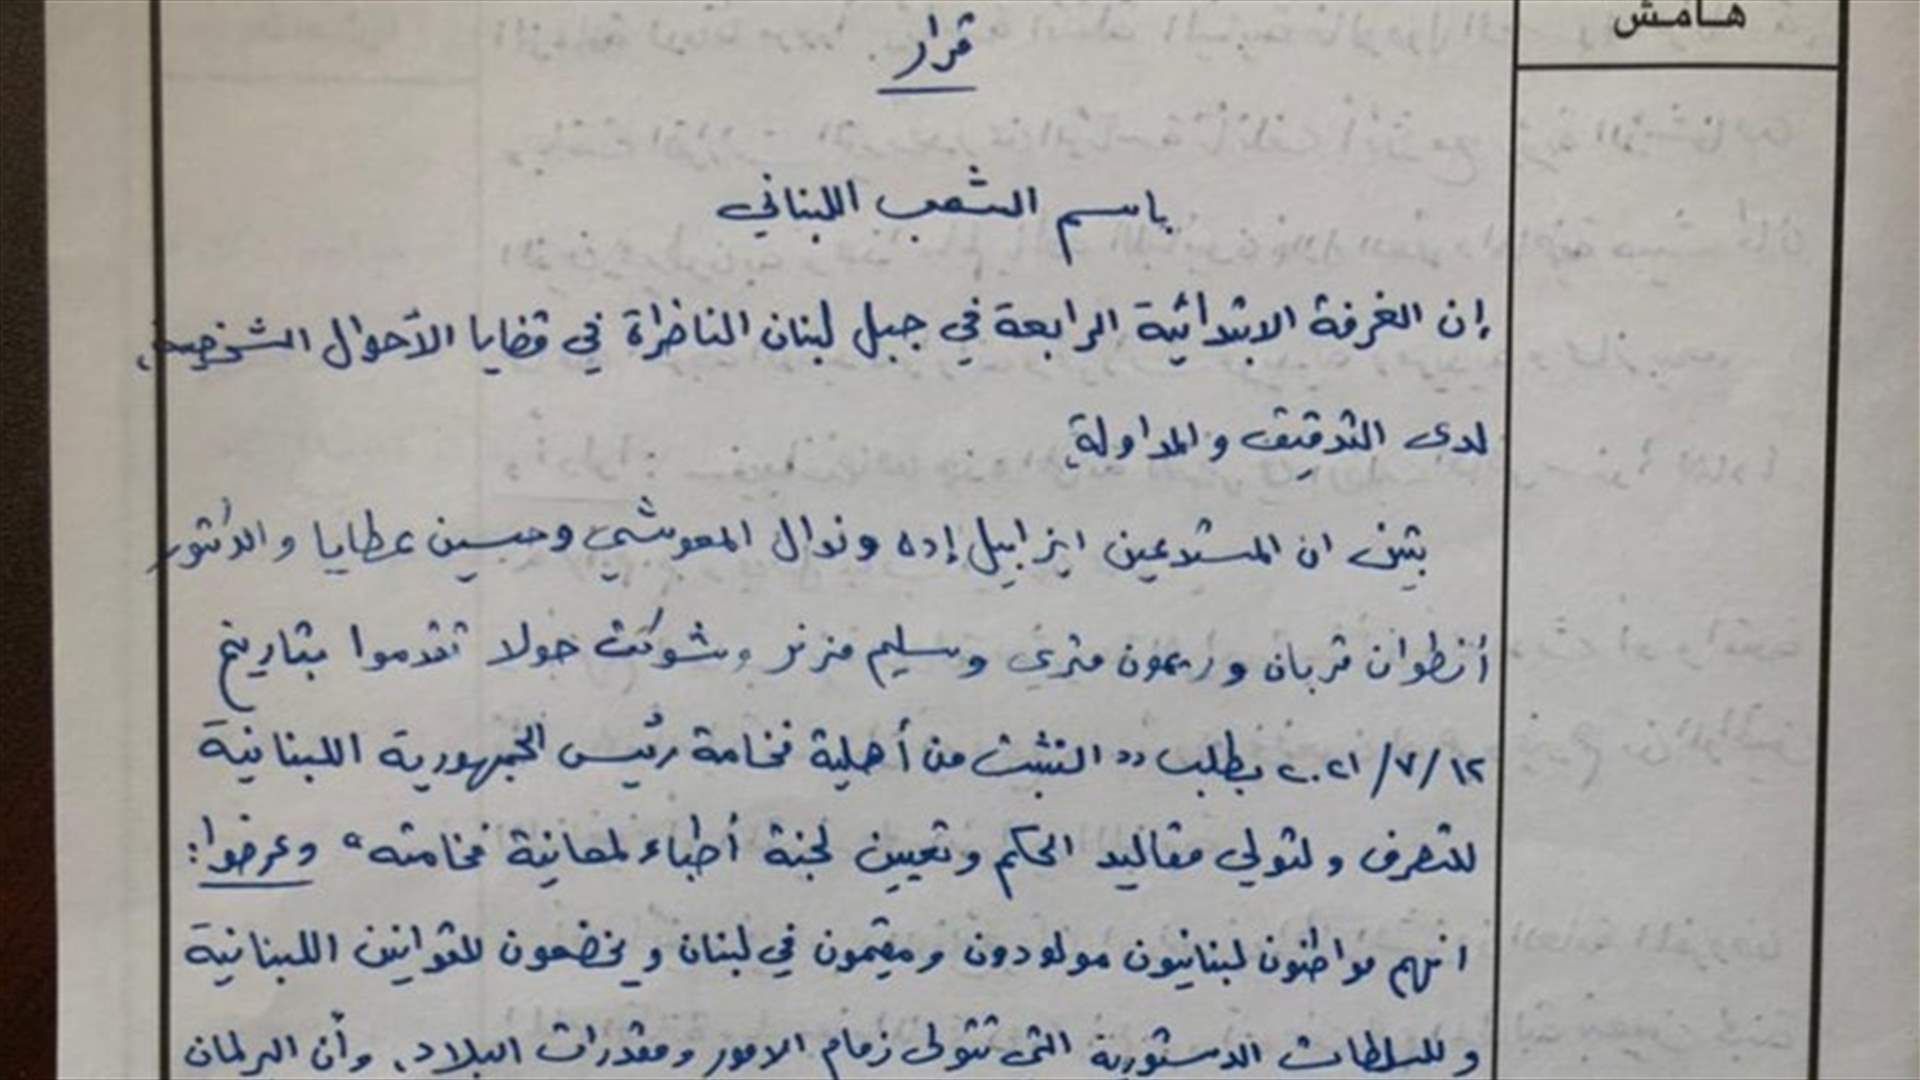 هامش
قرار
باسم الشعب اللبناني
إن الغرفة الابتدائية الرابعة في جبل لبنان الناظرة في قضايا الأحوال الشخصية،
لدى التدقيق والمداولة،
تبيّن ان المستدعين ايزابيل إده ونوال المعوشي وحسين عطايا والدكتور
أنطوان قربان وريمون متري وسليم مزنر وشوكت حولا تقدموا بتاريخ
١٢/٧/٢٠٢١ بطلب "التثبت من أهلية فخامة رئيس الجمهورية اللبنانية
للتصرف ولتولي مقاليد الحكم وتعيين لجنة أطباء لمعاينة فخامته" وعرضوا:
انهم مواطنون لبنانيون مولودون ومقيمون في لبنان ويخضعون للقوانين اللبنانية
وللسلطات الدستورية التي تتولى زمام الامور ومقدرات البلاد، وأن البرلمان